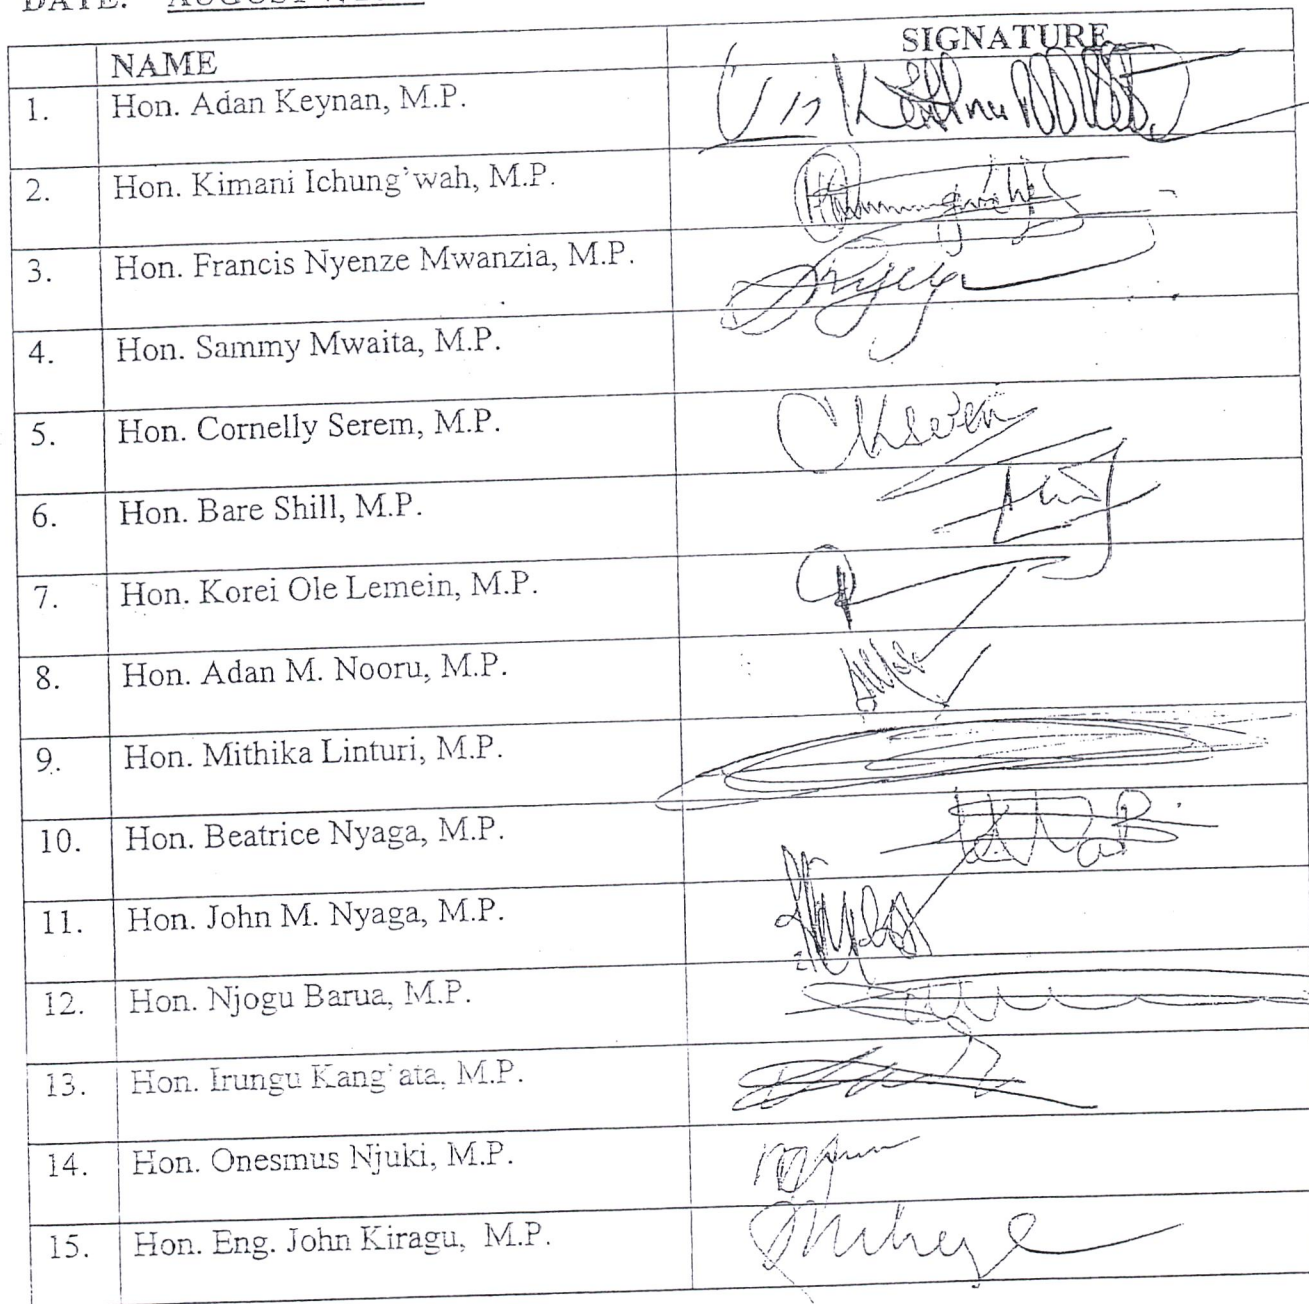 DATE: AUGUST
NAME SIGNATURE
1. Hon. Adan Keynan, M.P.
2. Hon. Kimani Ichung'wah, M.P.
3. Hon. Francis Nyenze Mwanzia, M.P.
4. Hon. Sammy Mwaita, M.P.
5. Hon. Cornelly Serem, M.P.
6. Hon. Bare Shill, M.P.
7. Hon. Korei Ole Lemein, M.P.
8. Hon. Adan M. Nooru, M.P.
9. Hon. Mithika Linturi, M.P.
10. Hon. Beatrice Nyaga, M.P.
11. Hon. John M. Nyaga, M.P.
12. Hon. Njogu Barua, M.P.
13. Hon. Irungu Kang'ata, M.P.
14. Hon. Onesmus Njuki, M.P.
15. Hon. Eng. John Kiragu, M.P.